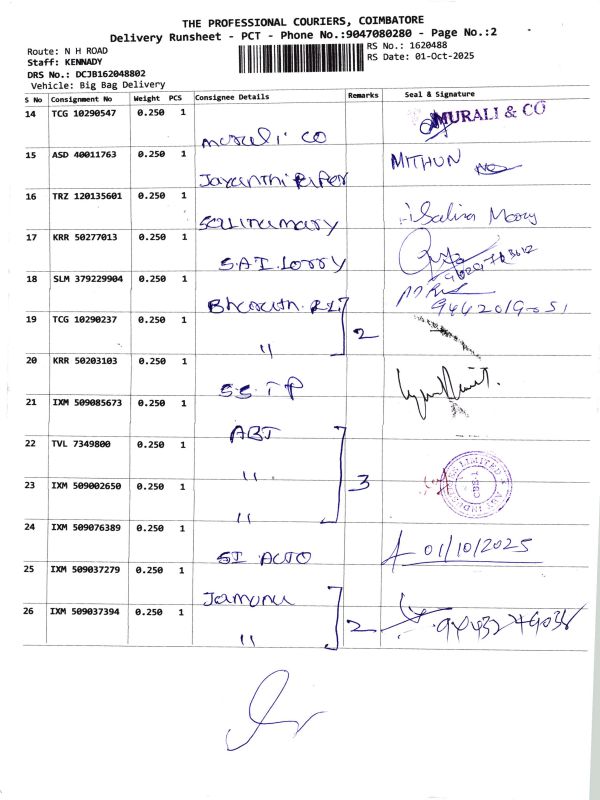 THE PROFESSIONAL COURIERS, COIMBATORE
Delivery Runsheet - PCT - Phone No.:9047080280 - Page No.:2
Route: N H ROAD
RS No.: 1620488
Staff: KENNADY
RS Date: 01-Oct-2025
DRS No.: DCJB162048802
Vehicle: Big Bag Delivery
S No Consignment No Weight PCS Consignee Details Remarks Seal & Signature
14 TCG 10290547 0.250 1 murali co MURALI & CO
15 ASD 40011763 0.250 1 Jayanthi Paper MITHUN
16 TRZ 120135601 0.250 1 Salinamary Salina Mary
17 KRR 50277013 0.250 1 S.A.T. Lorry
18 SLM 379229904 0.250 1 Bharath
19 TCG 10290237 0.250 1 " 2
20 KRR 50203103 0.250 1 S.S. T P
21 IXM 509085673 0.250 1 ABT
22 TVL 7349800 0.250 1 "
23 IXM 509002650 0.250 1 " 3
24 IXM 509076389 0.250 1 SI AUTO 01/10/2025
25 IXM 509037279 0.250 1 Jamunu
26 IXM 509037394 0.250 1 " 2